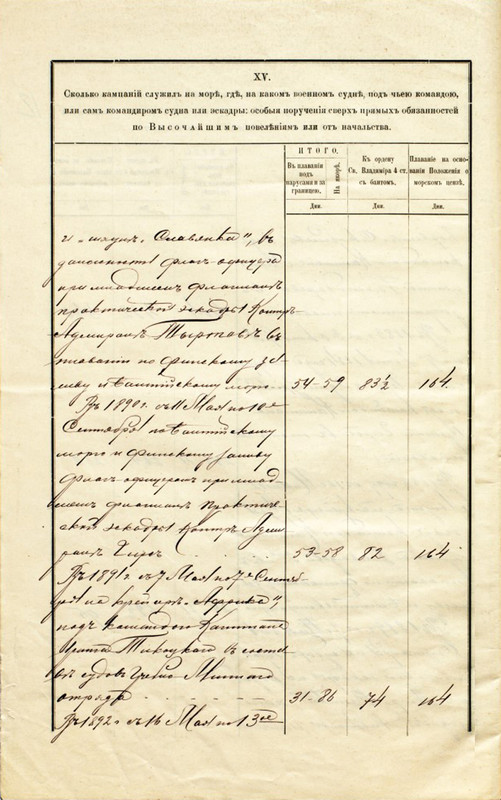 XV.
Сколько кампаній служилъ на морѣ, гдѣ, на какомъ военномъ суднѣ, подъ чьею командою,
или самъ командиромъ судна или эскадры: особыя порученія сверхъ прямыхъ обязанностей
по ВЫСОЧАЙШИМЪ повелѣніямъ или отъ начальства.
ИТОГО.
Въ плаваніи подъ парусами и за границею.
На якорѣ.
Къ ордену Св. Владиміра 4 ст. съ бантомъ.
Плаваніе на основаніи Положенія о морскомъ цензѣ.
Дни.
Дни.
Дни.
и „ Славянка", въ
должности флагъ-офицера
при младшемъ флагманѣ
практической эскадры Контръ-
Адмиралѣ Тыртовѣ въ
плаваніи по Финскому за-
ливу и Балтійскому морю
54-59 83½ 164.
Въ 1890 г. съ 11 Мая по 10е
Сентября по Балтійскому
морю и Финскому заливу
флагъ-офицеромъ при млад-
шемъ флагманѣ Практиче-
ской эскадры Контръ Адми-
ралѣ
53-58 82 164.
Въ 1891 г. съ 7 Мая по 7е Сентя-
бря на крейсерѣ „Африка",
подъ командою Капитана
въ соста-
вѣ судовъ Миннаго
отряда
31-86 74 164
Въ 1892 г. съ 16 Мая по 13ое